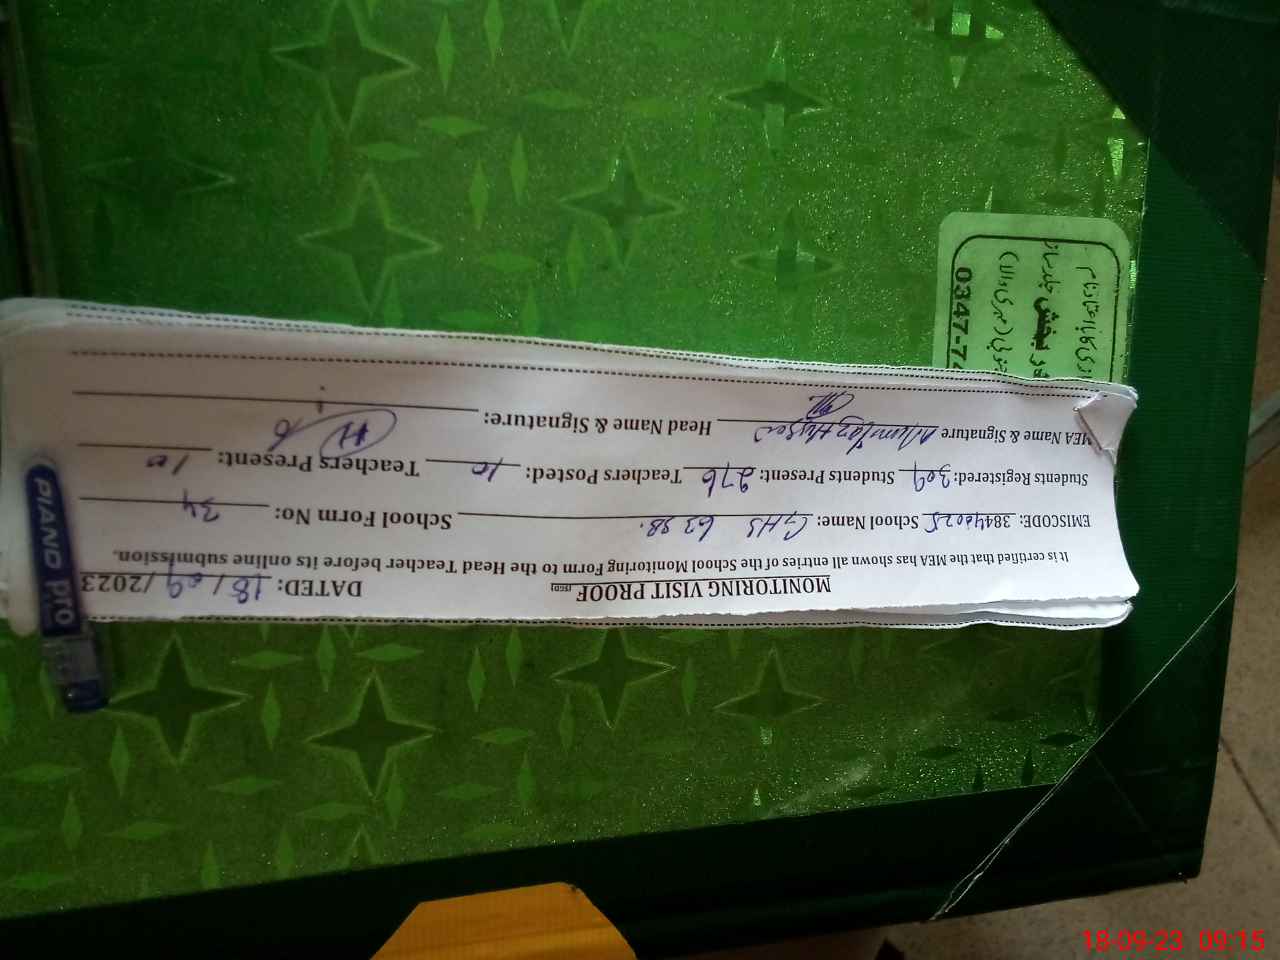 MONITORING VISIT PROOF (SED) DATED: 18/09/2023
It is certified that the MEA has shown all entries of the School Monitoring Form to the Head Teacher before its online submission.
EMISCODE: 38440025 School Name: GHS 63 SB. School Form No: 34
Students Registered: 309 Students Present: 276 Teachers Posted: 10 Teachers Present: 10
MEA Name & Signature Mumtaz Hussain Head Name & Signature:
PIANO pro
0347-7
18-09-23 09:15